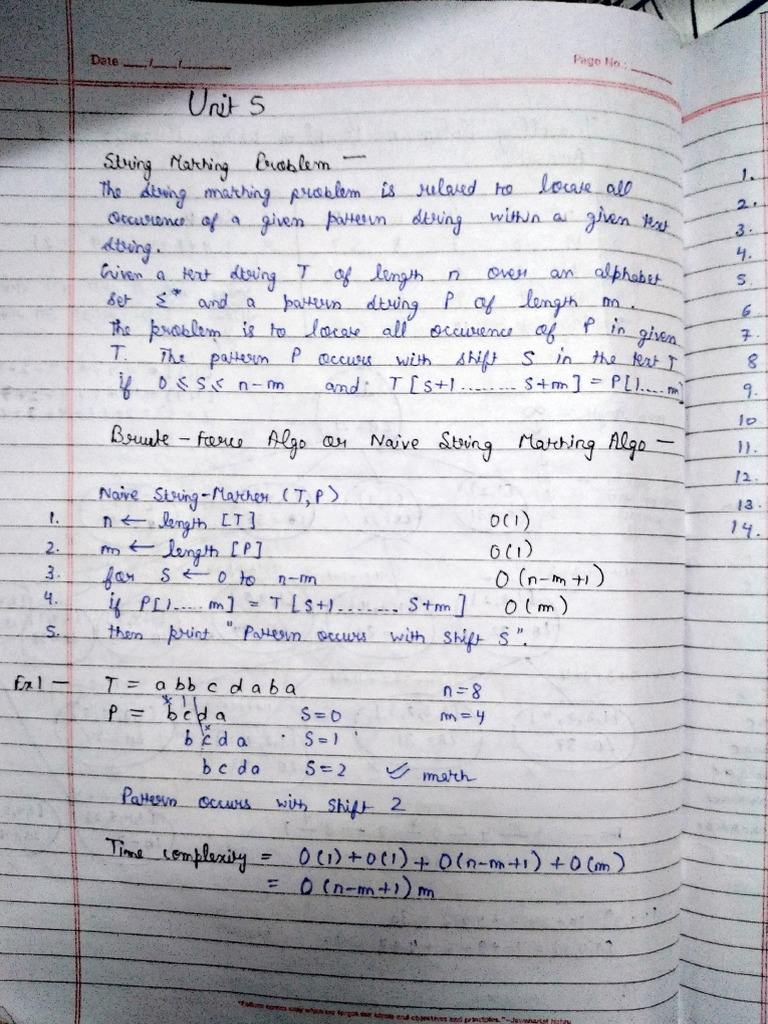 Date ___/___/______ Page No.: ______
Unit 5
String Matching Problem —
The string matching problem is related to locate all
occurence of a given pattern string within a given text
string.
Given a text string T of length n over an alphabet
set Σ* and a pattern string P of length m.
The problem is to locate all occurence of P in given
T. The pattern P occurs with shift S in the text T
if 0 ≤ S ≤ n-m and T[S+1........S+m] = P[1....m]
Bruute-Force Algo or Naive String Matching Algo —
Naive String-Matcher (T,P)
1. n ← length [T] O(1)
2. m ← length [P] O(1)
3. for S ← 0 to n-m O(n-m+1)
4. if P[1.....m] = T[S+1........S+m] O(m)
5. then print "Pattern occurs with shift S".
Ex1 — T = abbcdaba n=8
P = bcda S=0 m=4
bcda S=1
bcda S=2 ✓ match
Pattern occurs with shift 2
Time complexity = O(1)+O(1)+O(n-m+1)+O(m)
= O(n-m+1)m
1.
2.
3.
4.
5
6
7.
8
9.
10
11.
12.
13.
14.